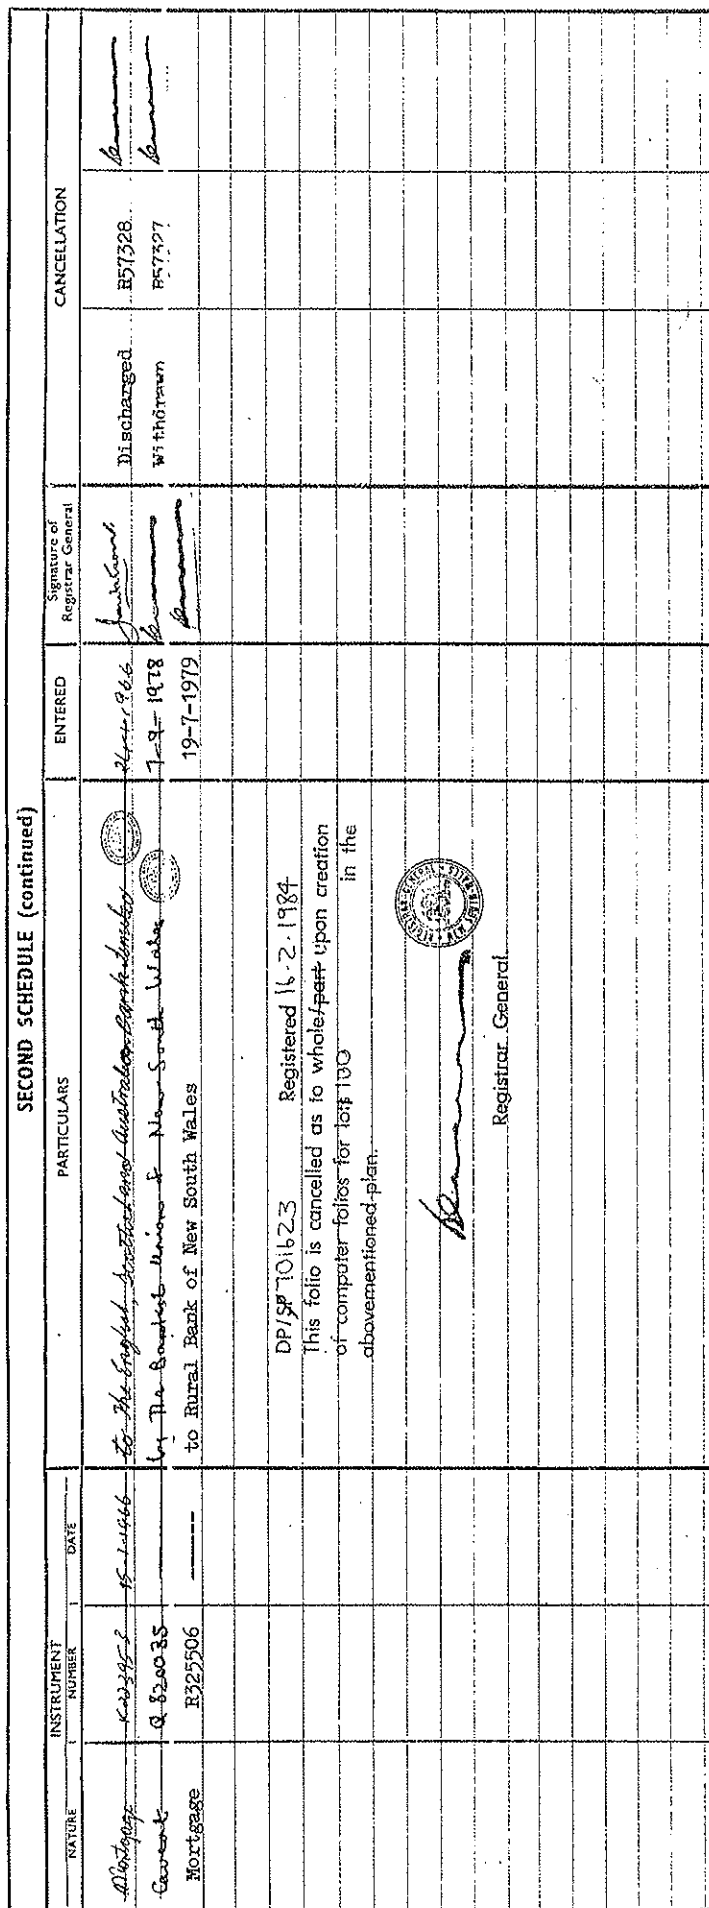 SECOND SCHEDULE (continued)
INSTRUMENT
NATURE NUMBER DATE PARTICULARS ENTERED Signature of Registrar General CANCELLATION
Mortgage 15-1-1966 to The English, Scottish and Australian Bank Limited 1966 Discharged R57328
Caveat Q820035 by The Baptist Union of New South Wales 7-9-1978 Withdrawn R57327
Mortgage R325506 to Rural Bank of New South Wales 19-7-1979
DP/SP 701623 Registered 16-2-1984
This folio is cancelled as to whole/part upon creation
of computer folios for lots 100 in the
abovementioned plan.
Registrar General